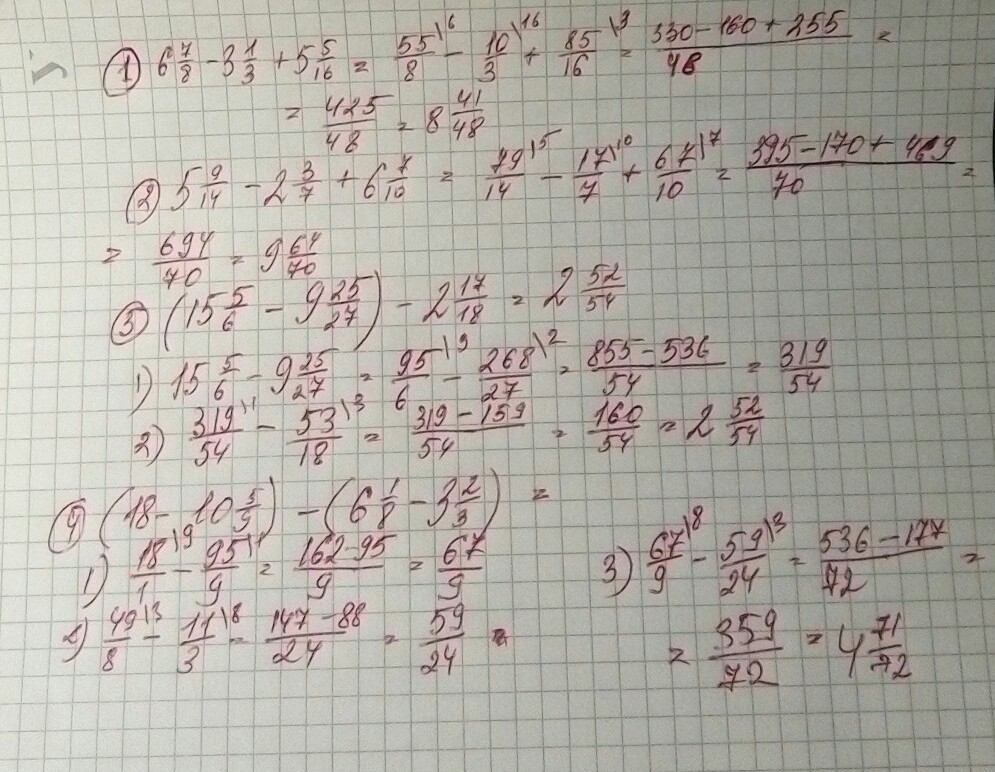 ① 6 7/8 - 3 1/3 + 5 5/16 = 55/8 \6 - 10/3 \16 + 85/16 \3 = (330 - 160 + 255)/48 =
= 425/48 = 8 41/48
② 5 9/14 - 2 3/7 + 6 7/10 = 79/14 \5 - 17/7 \10 + 67/10 \7 = (395 - 170 + 469)/70 =
= 694/70 = 9 64/70
③ (15 5/6 - 9 25/27) - 2 17/18 = 2 52/54
1) 15 5/6 - 9 25/27 = 95/6 \9 - 268/27 \2 = (855 - 536)/54 = 319/54
2) 319/54 \1 - 53/18 \3 = (319 - 159)/54 = 160/54 = 2 52/54
④ (18 - 10 5/9) - (6 1/8 - 3 2/3) =
1) 18/1 \9 - 95/9 \1 = (162 - 95)/9 = 67/9
2) 49/8 \3 - 11/3 \8 = (147 - 88)/24 = 59/24
3) 67/9 \8 - 59/24 \3 = (536 - 177)/72 =
= 359/72 = 4 71/72